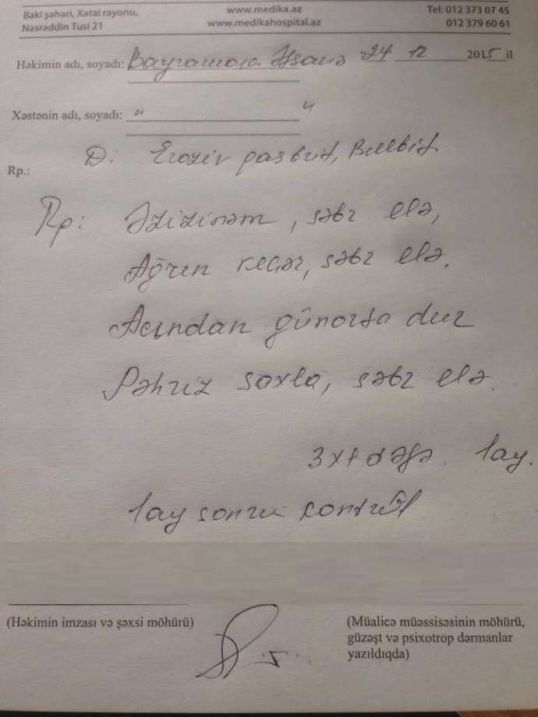 Bakı şəhəri, Xətai rayonu,
Nəsrəddin Tusi 21
www.medika.az
www.medikahospital.az
Tel: 012 373 07 45
012 379 60 61
Həkimin adı, soyadı: Bayramova Əfsanə 24 12 2015 il
Xəstənin adı, soyadı: " "
D: Eroziv qastrit, Bulbit
Rp.:
Rp: Əzizinəm, səbr elə,
Ağrın keçər, səbr elə.
Acından günorta dur
Pəhriz saxla, səbr elə.
3x1 dəfə. 1ay.
1ay sonra kontrol
(Həkimin imzası və şəxsi möhürü)
(Müalicə müəssisəsinin möhürü,
güzəşt və psixotrop dərmanlar
yazıldıqda)